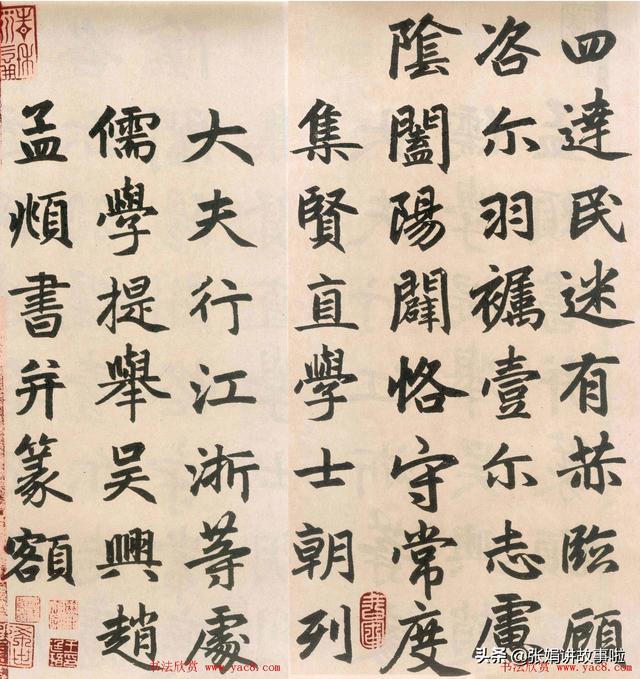 四達民迷有赫臨顧
咨尓羽壹尓志慮
陰闔陽闢恪守常度
集賢直學士朝列
大夫行江浙等處
儒學提舉吳興趙
孟頫書并篆額
书法欣赏 www.yac8.com
头条 @张娟讲故事啦